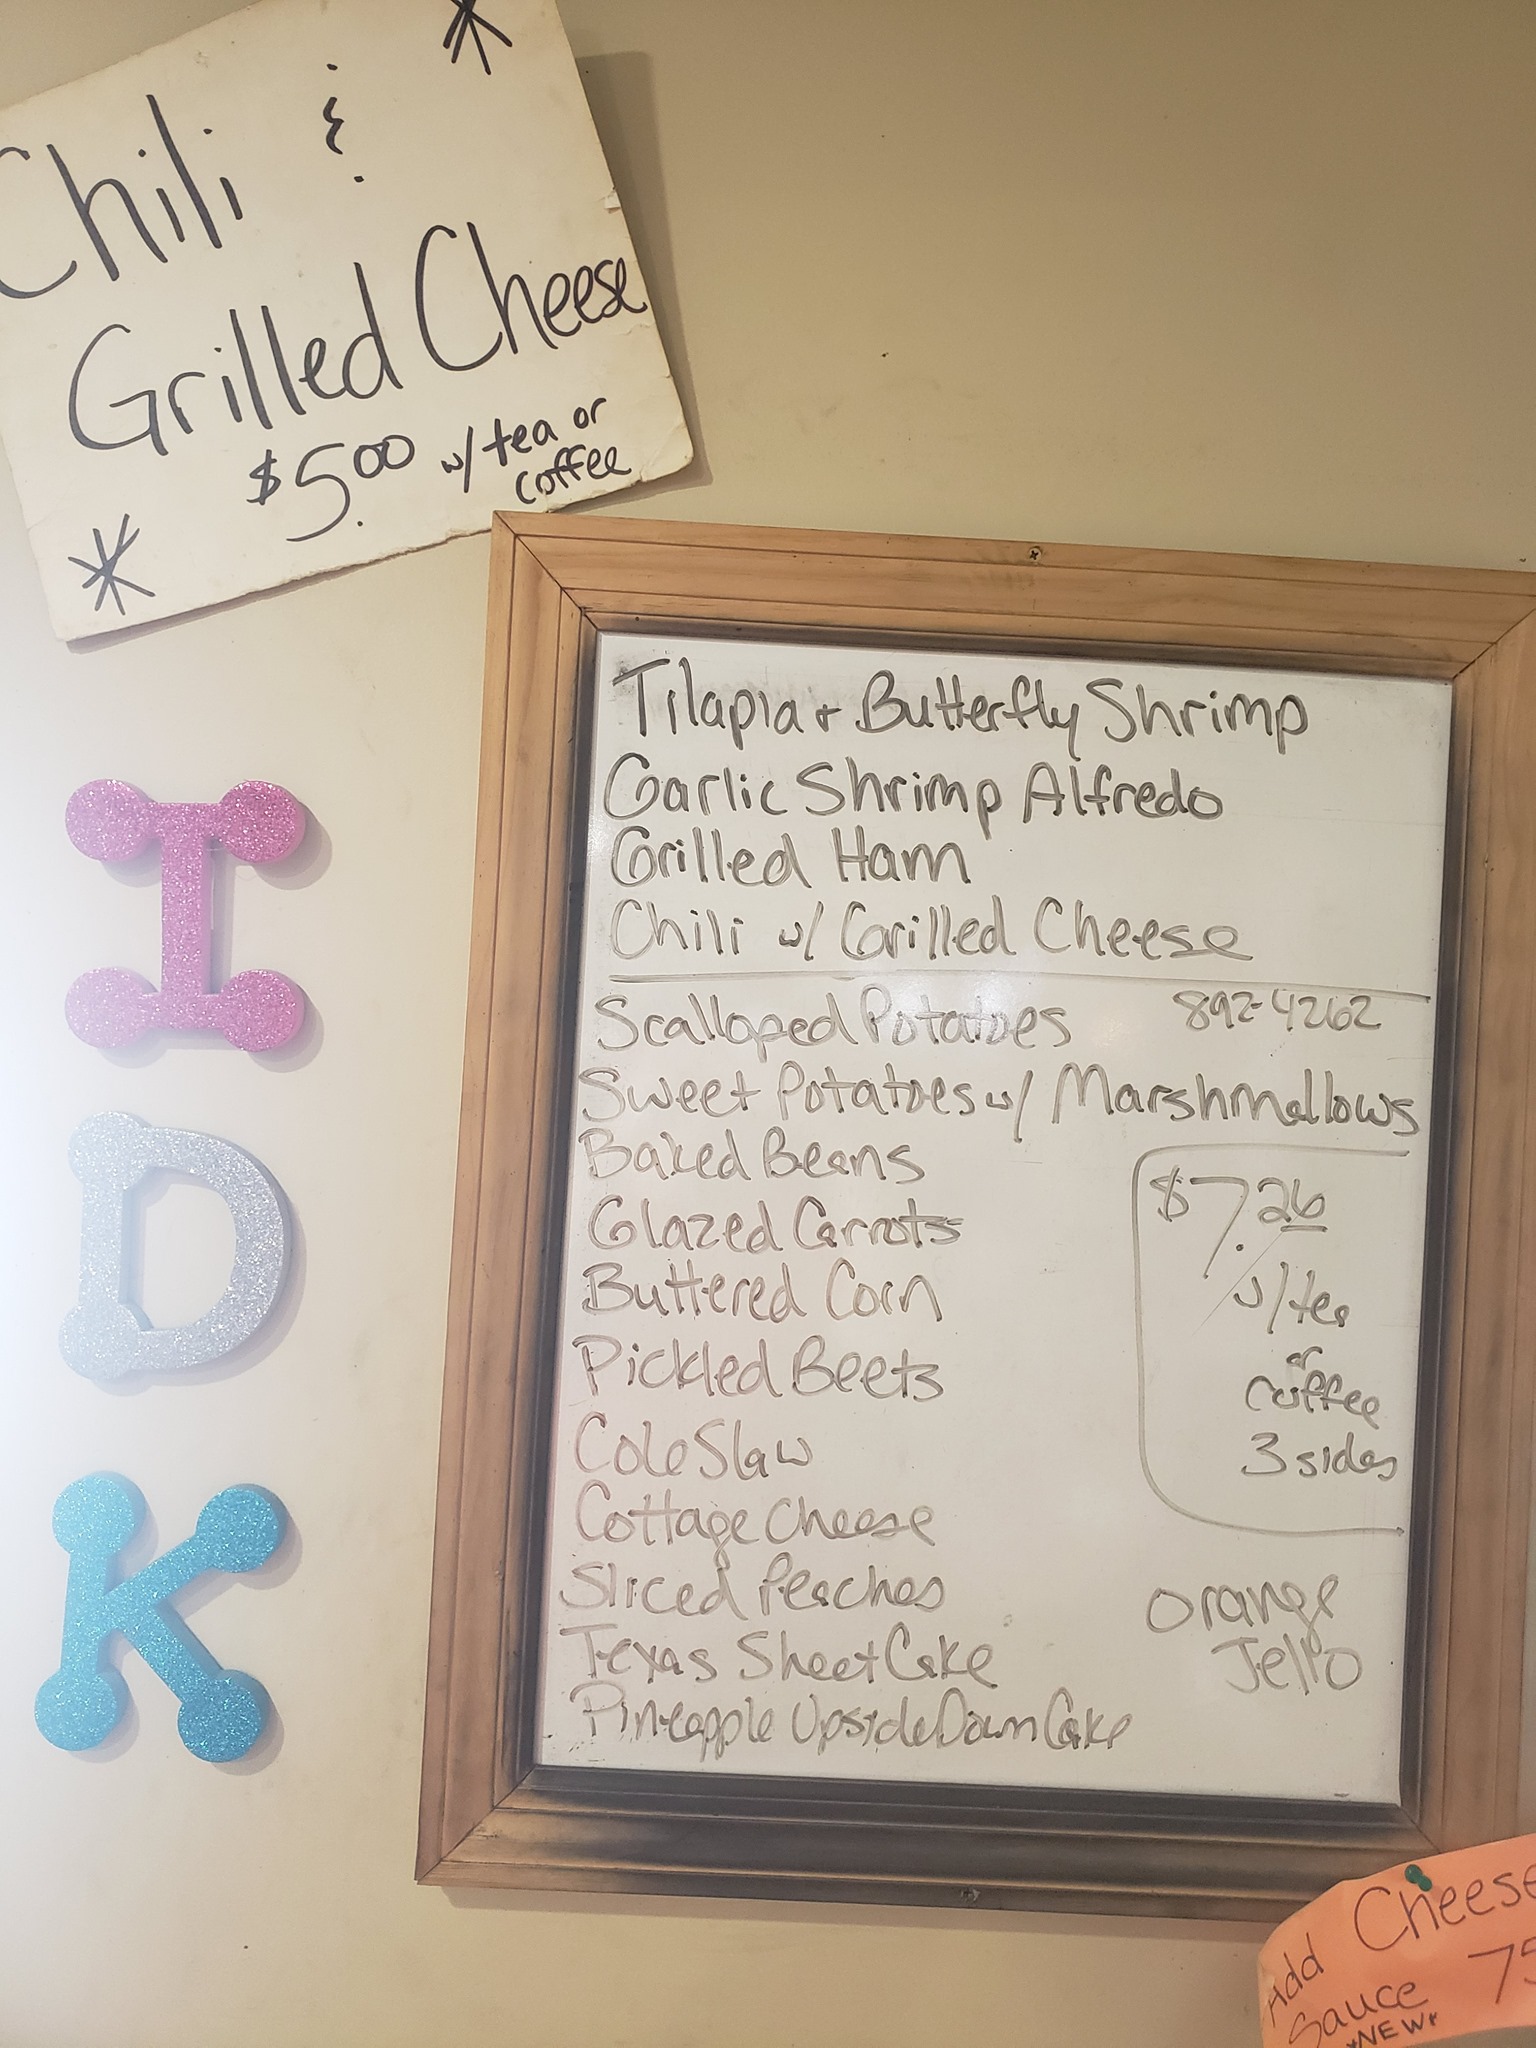 Chili &
Grilled Cheese
$5.00 w/ tea or
coffee
I
D
K
Tilapia + Butterfly Shrimp
Garlic Shrimp Alfredo
Grilled Ham
Chili w/ Grilled Cheese
Scalloped Potatoes 892-4262
Sweet Potatoes w/ Marshmallows
Baked Beans
Glazed Carrots
Buttered Corn
Pickled Beets
Cole Slaw
Cottage Cheese
Sliced Peaches
Texas Sheet Cake
Pineapple Upside Down Cake
$7.26
w/ tea
or
coffee
3 sides
Orange
Jello
Add Cheese
Sauce 75
*NEW*